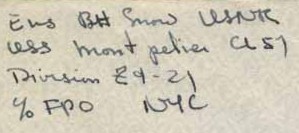 Ens BH Snow USNR
USS Montpelier CL57
Division 24-21
c/o FPO NYC